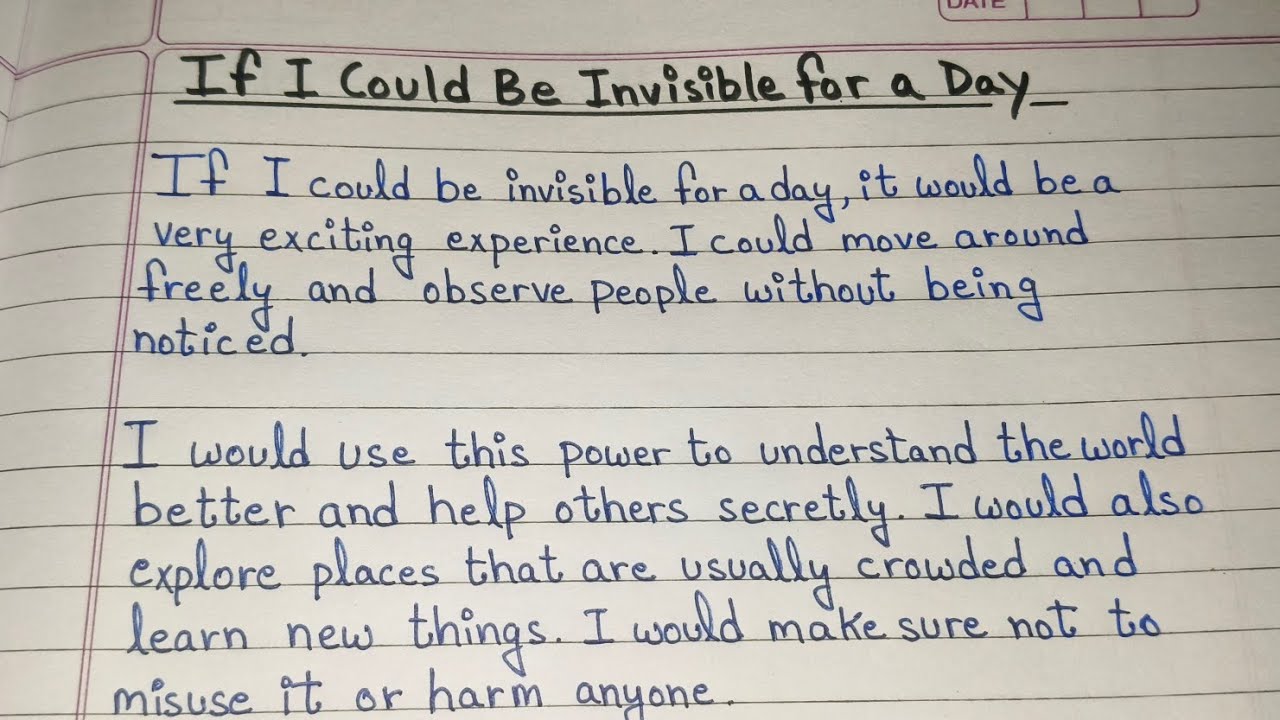 DATE
If I Could Be Invisible for a Day
If I could be invisible for a day, it would be a
very exciting experience. I could move around
freely and observe people without being
noticed.
I would use this power to understand the world
better and help others secretly. I would also
explore places that are usually crowded and
learn new things. I would make sure not to
misuse it or harm anyone.